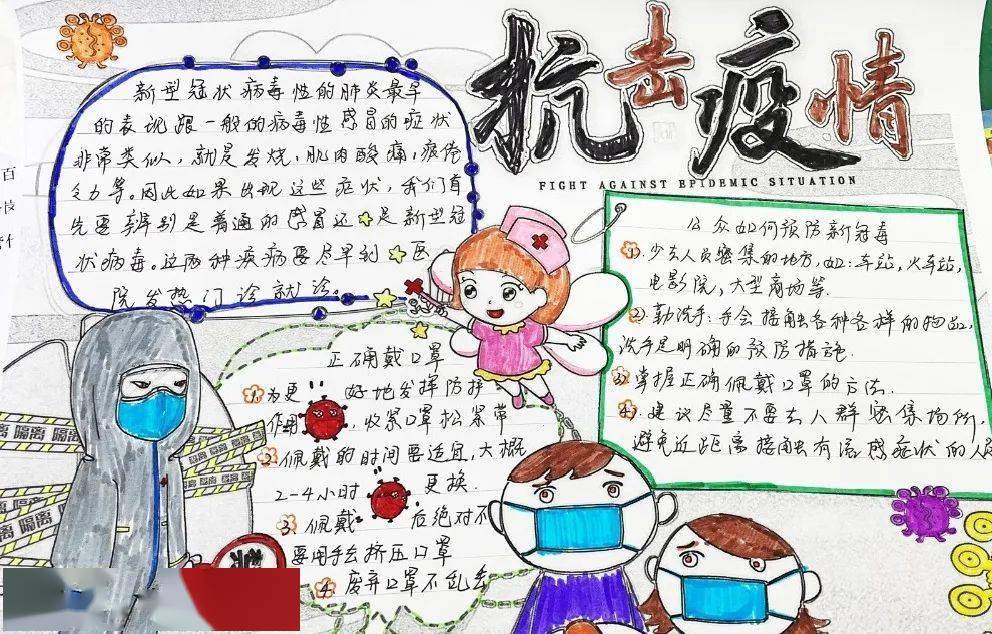 抗击疫情
FIGHT AGAINST EPIDEMIC SITUATION
新型冠状病毒性的肺炎最早
的表现跟一般的病毒性感冒的症状
非常类似，就是发烧，肌肉酸痛，疲倦
乏力等。因此如果出现这些症状，我们首
先要辨别是普通的感冒还是新型冠
状病毒。这两种疾病要尽早到医
院发热门诊就诊。
正确戴口罩
1 为更好地发挥防护
作用，收紧口罩松紧带
2 佩戴的时间要适宜，大概
2-4小时更换.
3 佩戴后绝对不
要用手去挤压口罩
4 废弃口罩不乱丢
公众如何预防新冠毒
1) 少去人员密集的地方，如：车站，火车站，
电影院，大型商场等.
2) 勤洗手：手会接触各种各样的物品，
洗手是明确的预防措施.
3) 掌握正确佩戴口罩的方法.
4) 建议尽量不要去人群密集场所，
避免近距离接触有流感症状的人
隔离
隔离
隔离
隔离
隔离
隔离
百